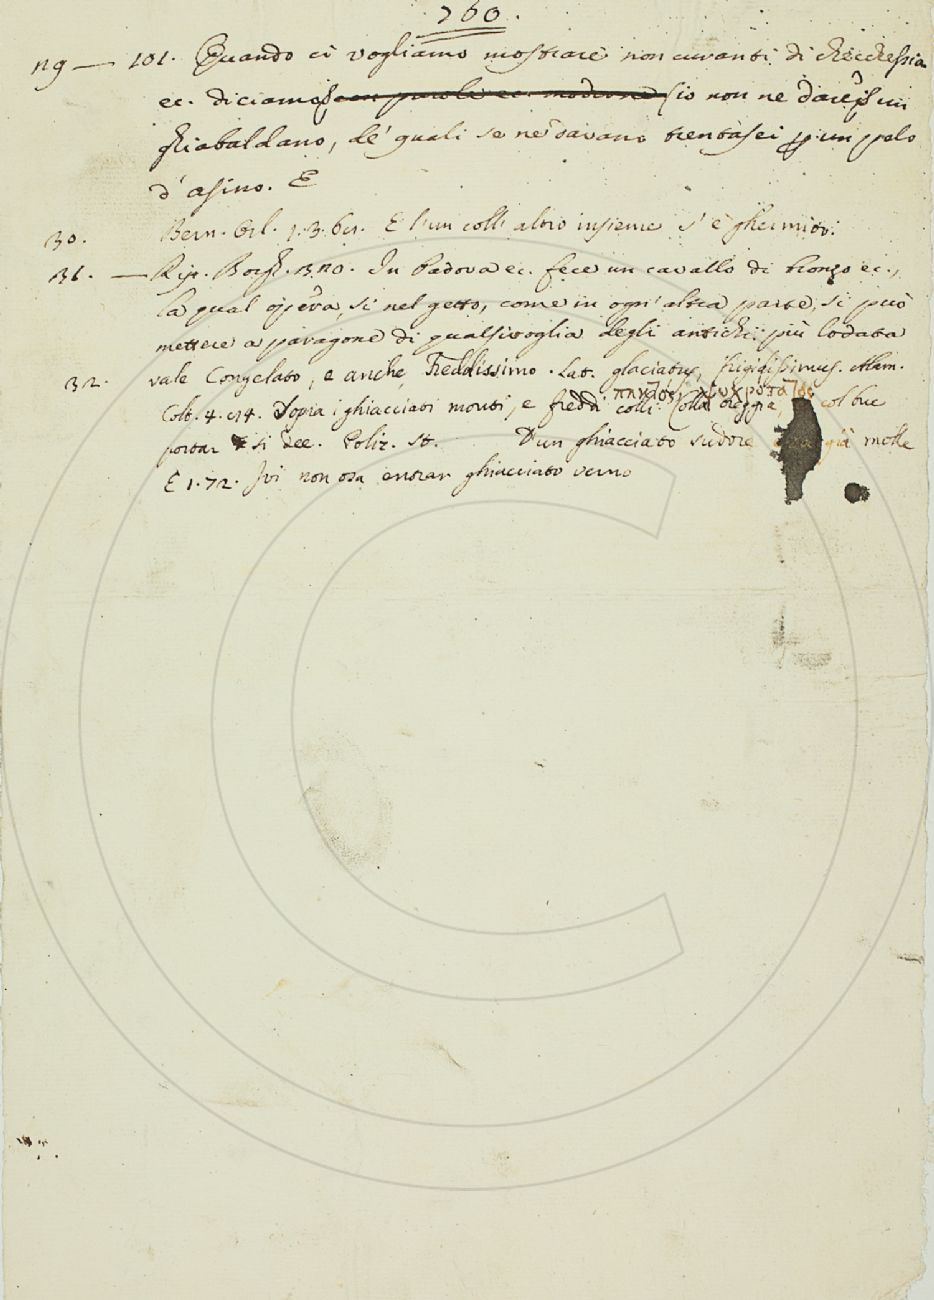 760.
29 — 101. Quando ci vogliamo mostrare non curanti di checchessia
ec. diciamo con parole ec. moderne io non ne darei un
ghiabaldano, de' quali se ne davano trentasei p. un pelo
d'asino. E
30. Bern. Orl. 1. 3. 61. E l'un coll'altro insieme s'è ghermito.
31. — Rip. Borgh. 320. In Padova ec. fece un cavallo di bronzo ec.,
la qual opera, sì nel getto, come in ogn'altra parte, si può
mettere a paragone di qualsivoglia degli antichi più lodata
32. vale Congelato, e anche Freddissimo. Lat. glaciatus, frigidissimus. Alam.
Colt. 4. 94. Sopra i ghiacciati monti, e freddi colli Colla treggia, col bue
portar si dee. Poliz. st. D'un ghiacciato sudore già molle
E 1. 72. Ivi non osa entrar ghiacciato verno